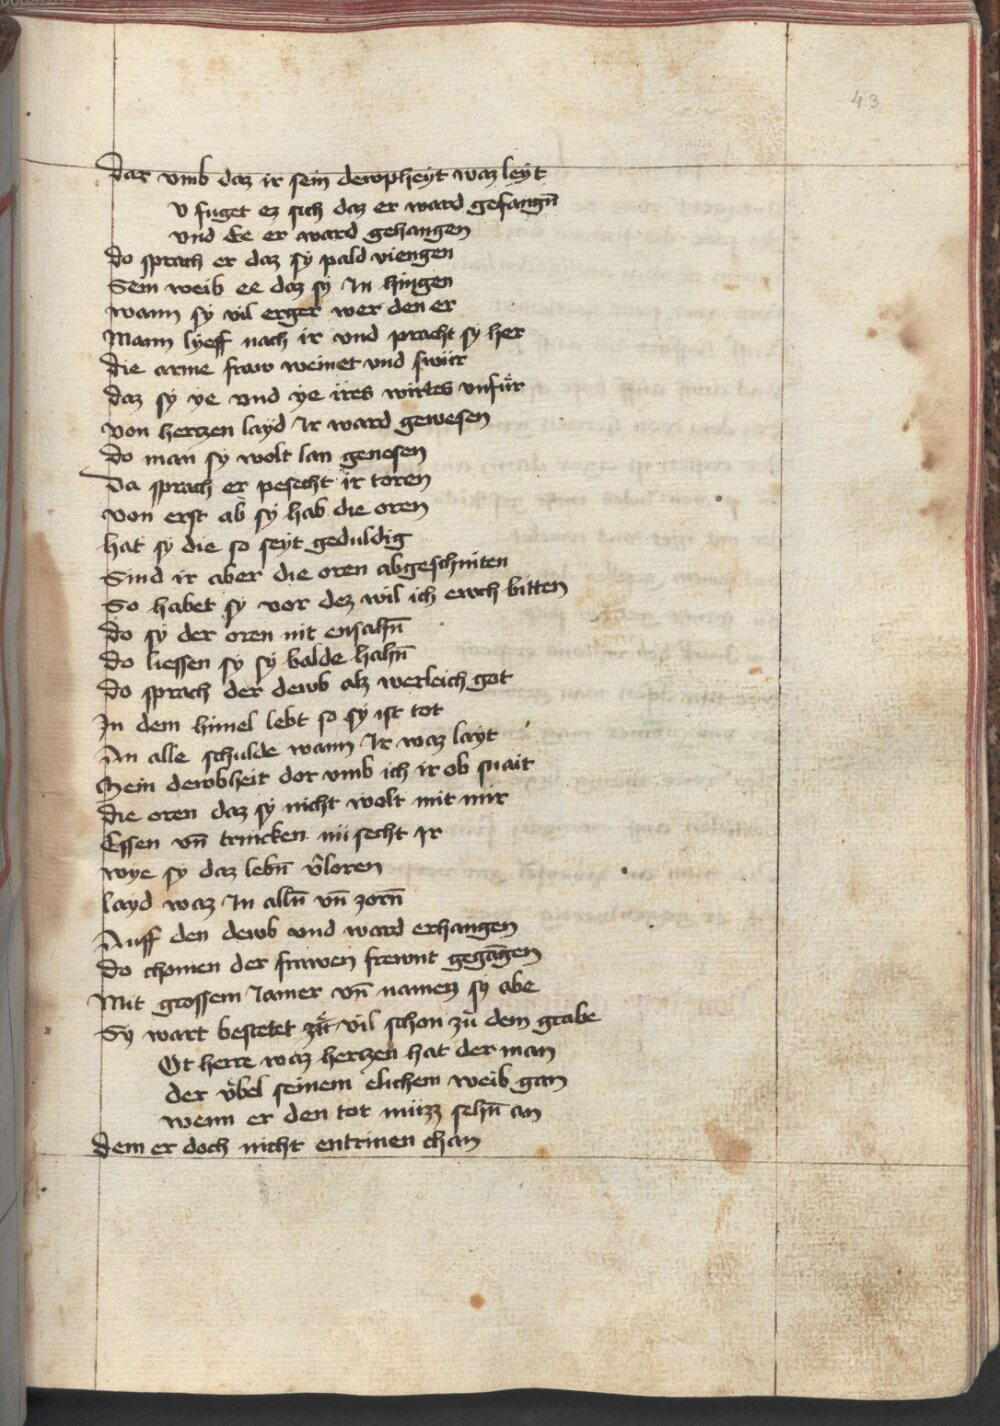 43
Dar vmb daz ir sein dewpheyt waz leyt
v fuget ez sich daz er ward gefangn̄
vnd Ee er ward gehangen
Do sprach er daz sy pald viengen
Sein weib ee daz sy In hingen
wann sy vil erger wer den er
Mann lyeff nach ir vnd pracht sy her
die arme fraw weinet vnd swůr
daz sy ye vnd ye ires wirtes vnfůr
von hertzen layd Ir ward gewesen
Do man sy wolt lan genesen
Da sprach er pesecht ir toren
von erst ab sy hab die oren
hat sy die so seyt geduldig
Sind ir aber die oren abgeschniten
So habet sy vor dez wil ich ewch bitten
Do sy der oren nit ensahn̄
Do liessen sy sy balde hahn̄
Do sprach der dewb alz werleich got
In dem himel lebt so sy ist tot
An alle schulde wann Ir waz layt
Mein dewbheit dor vmb ich ir ob snait
die oren daz sy nicht wolt mit mir
Essen vn̄ trincken nü secht Ir
wye sy daz lebn̄ v̂loren
layd waz In alln̄ vn̄ zorn̄
Auff den dewb vnd ward erhangen
Do chomen der frawen frewnt gegāgen
Mit grossem Iamer vn̄ namen sy abe
Sy wart bestetet vil schon zů dem grabe
Ot herre waz hertzen hat der man
der v̂bel seinem elichem weib gan
wenn er den tot müzz sehn̄ an
dem er doch nicht entrinen chan